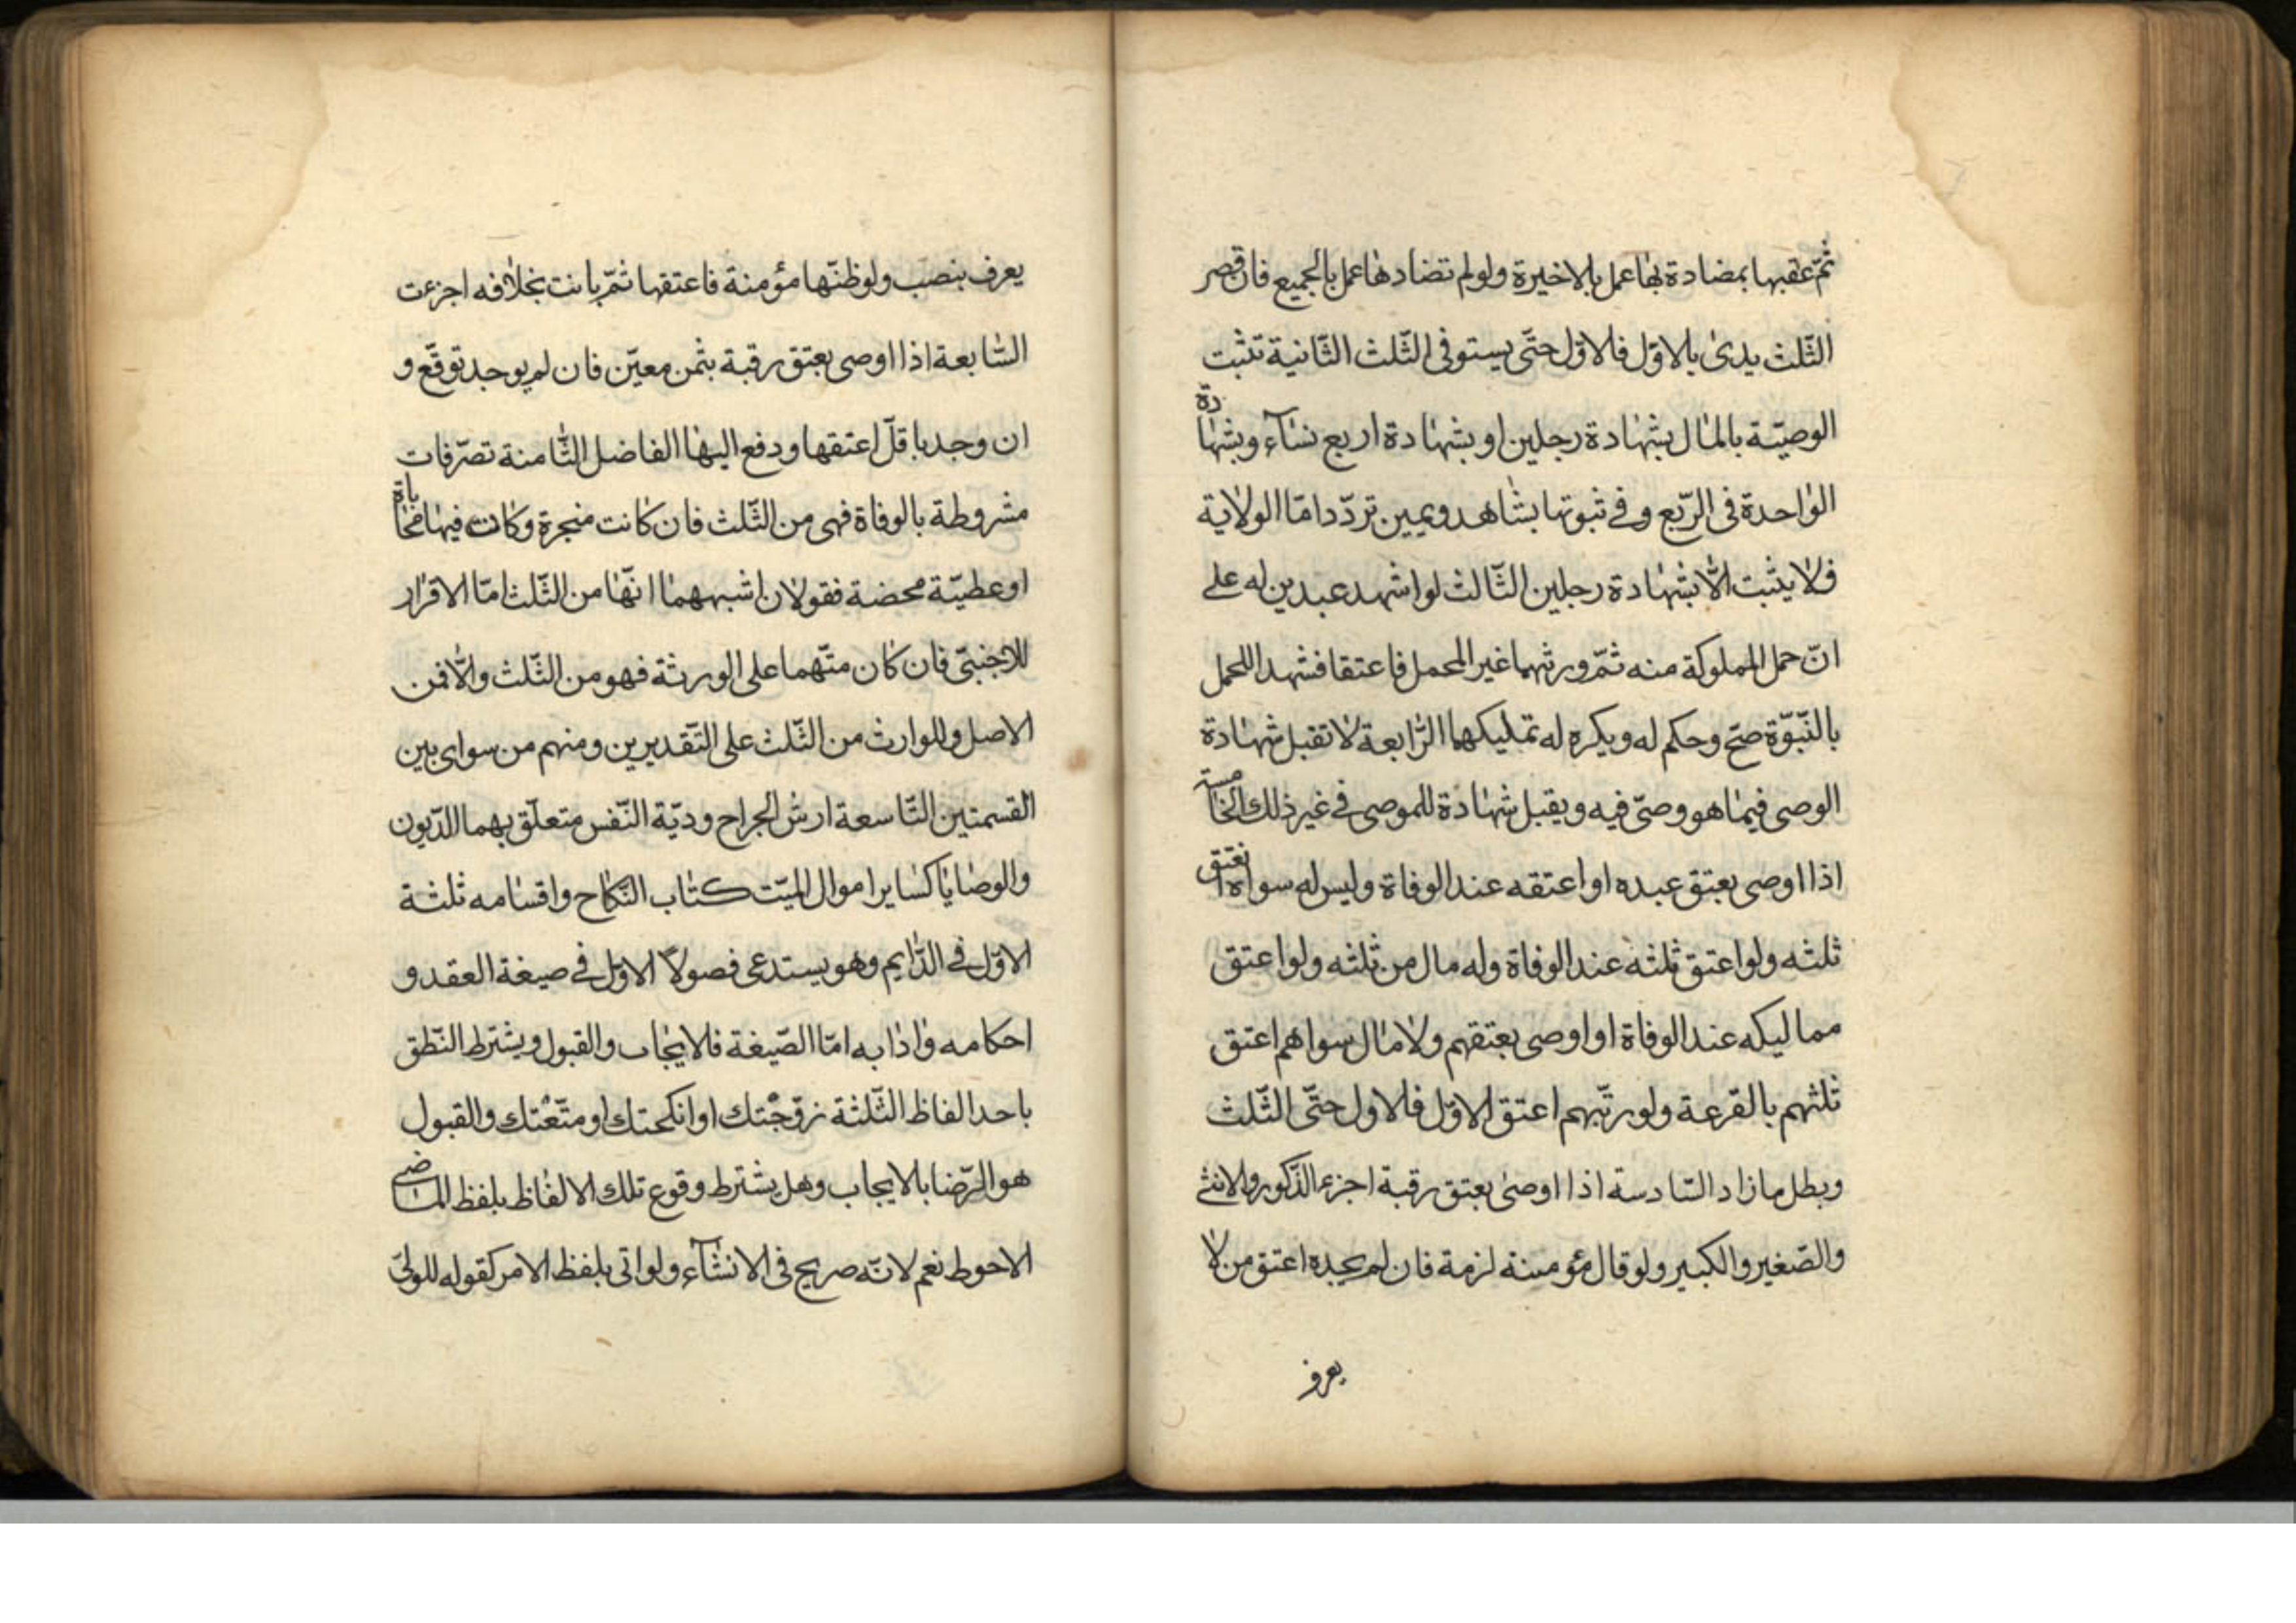 ثمّ عقبها بمضادة لها عمل بالاخيرة ولو لم تضادها عمل بالجميع فان قصر
الثّلث بدئ بالاوّل فالاوّل حتّى يستوفى الثّلث الثّانية تثبت
الوصيّة بالمال بشهادة رجلين او بشهادة اربع نسآء وبشهادة
الواحدة فى الرّبع وفى ثبوتها بشاهد ويمين تردّد امّا الولاية
فلا يثبت الّا بشهادة رجلين الثّالث لو اشهد عبدين له على
انّ حمل المملوكة منه ثمّ ورثهما غير الحمل فاعتقا فشهدا للحمل
بالنّبوّة صحّ وحكم له ويكره له تمليكهما الرّابعة لا تقبل شهادة
الوصى فيما هو وصىّ فيه ويقبل شهادة للموصى فى غير ذلك الخامسة
اذا اوصى بعتق عبده او اعتقه عند الوفاة وليس له سواه انعتق
ثلثه ولو اعتق ثلثه عند الوفاة وله مال من ثلثه ولو اعتق
مماليكه عند الوفاة او اوصى بعتقهم ولا مال سواهم اعتق
ثلثهم بالقرعة ولو رتّبهم اعتق الاوّل فالاول حتّى الثّلث
وبطل ما زاد السّادسة اذا اوصى بعتق رقبة اجزء الذّكور والانثى
والصّغير والكبير ولو قال مؤمنة لزمة فان لم يجده اعتق من لا
يعرف
يعرف بنصب ولو ظنّها مؤمنة فاعتقها ثمّ بانت بخلافه اجزءت
السّابعة اذا اوصى بعتق رقبة بثمن معيّن فان لم يوجد توقّع و
ان وجد باقلّ اعتقها ودفع اليها الفاضل الثّامنة تصرّفات
مشروطة بالوفاة فهى من الثّلث فان كانت منجرة وكانت فيها محاباة
او عطيّة محضة فقولان اشبههما انّها من الثّلث امّا الاقرار
للاجنبىّ فان كان متّهما على الورثة فهو من الثّلث والّا فمن
الاصل وللوارث من الثّلث على التّقديرين ومنهم من سواى بين
القسمتين التّاسعة ارش الجراح وديّة النّفس متعلّق بهما الدّيون
والوصايا كساير اموال الميّت كتاب النّكاح واقسامه ثلثة
الاوّل فى الدّايم وهو يستدعى فصولاً الاوّل فى صيغة العقد و
احكامه واٰدابه امّا الصّيغة فالايجاب والقبول ويشترط النّطق
باحد الفاظ الثّلثة زوّجتك او انكحتك او متّعتك والقبول
هو الرّضا بالايجاب وهل يشترط وقوع تلك الالفاظ بلفظ الماضى
الاحوط نعم لانّه صريح فى الانشآء ولو اتى بلفظ الامر كقوله للولىّ